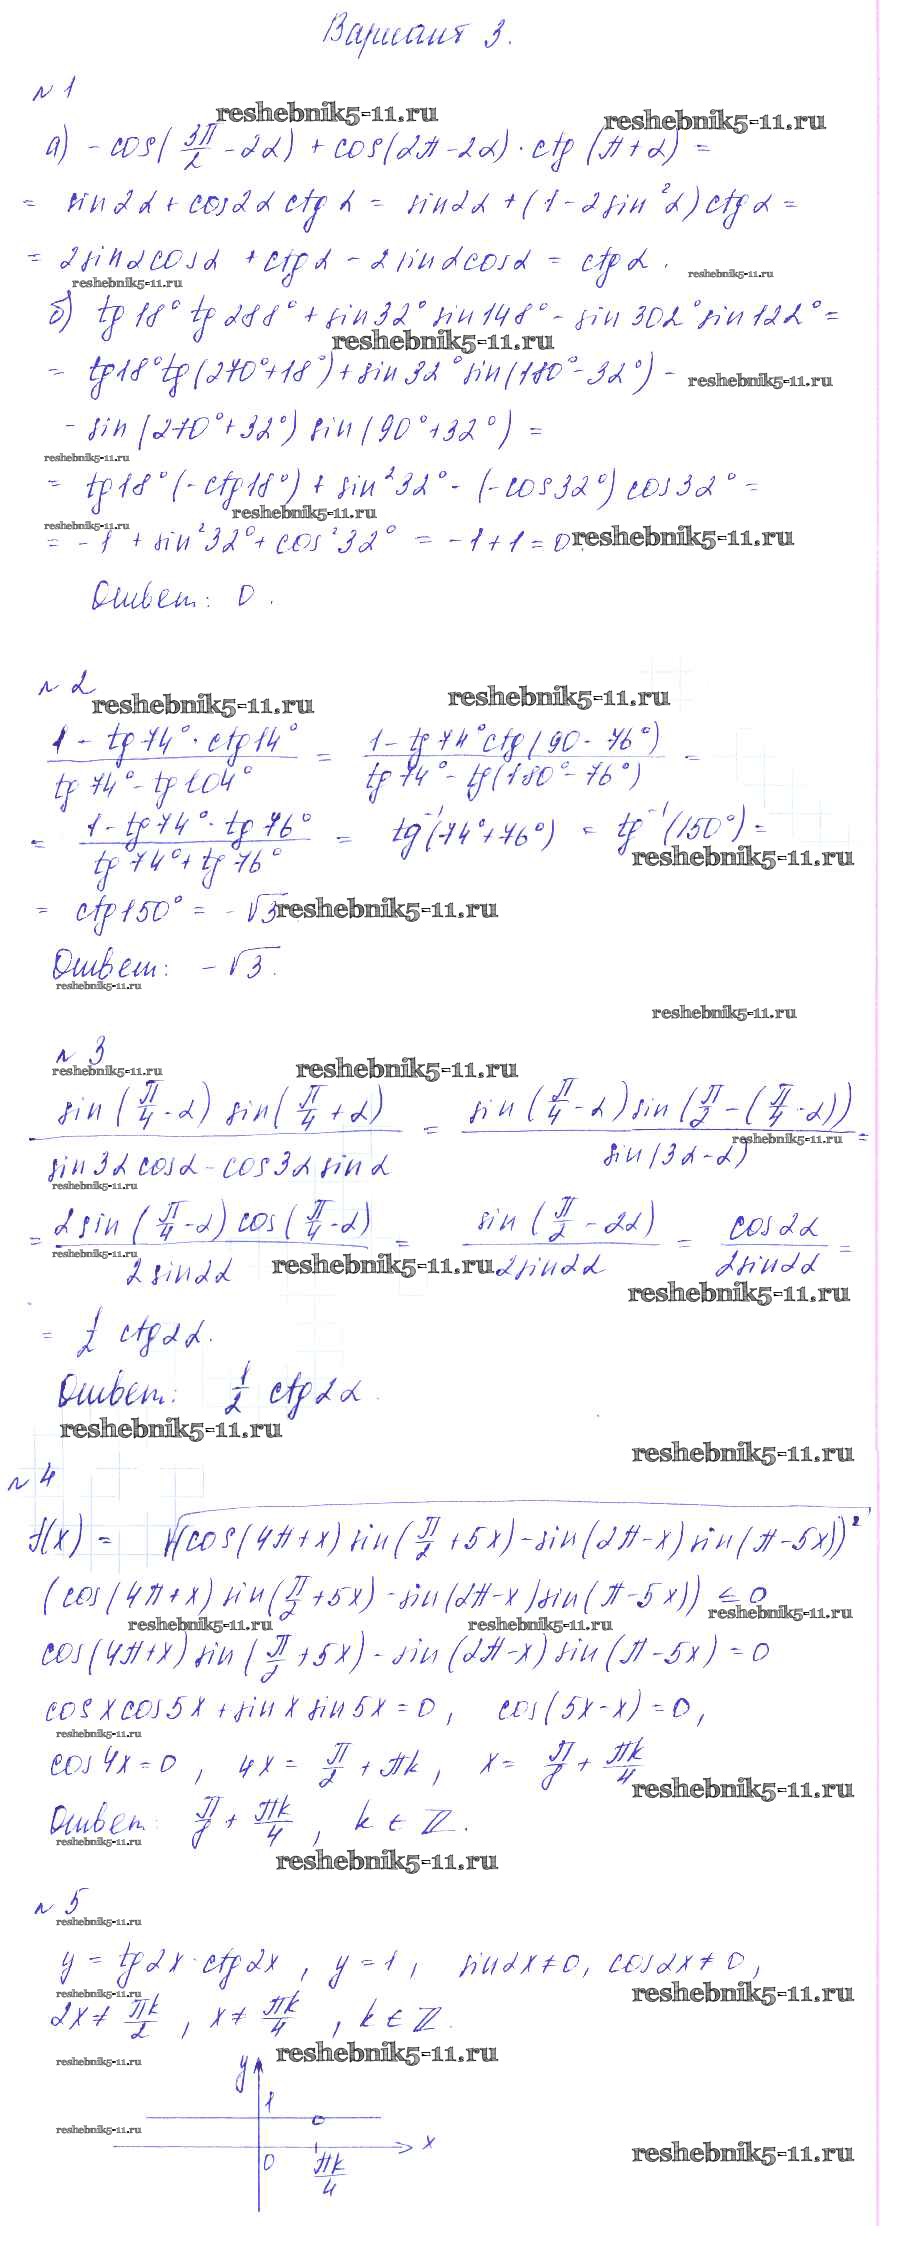 Вариант 3.
№1
reshebnik5-11.ru
reshebnik5-11.ru
а) - cos(3π/2 - 2α) + cos(2π - 2α) · ctg(π + α) =
= sin2α + cos2α ctgα = sin2α + (1 - 2sin²α) ctgα =
= 2sinαcosα + ctgα - 2sinαcosα = ctgα.
reshebnik5-11.ru
reshebnik5-11.ru
б) tg18° tg288° + sin32° sin148° - sin302° sin122° =
reshebnik5-11.ru
= tg18° tg(270°+18°) + sin32° sin(180°-32°) -
reshebnik5-11.ru
- sin(270°+32°) sin(90°+32°) =
reshebnik5-11.ru
= tg18° (-ctg18°) + sin²32° - (-cos32°) cos32° =
reshebnik5-11.ru
reshebnik5-11.ru
= -1 + sin²32° + cos²32° = -1+1=0
reshebnik5-11.ru
Ответ: 0.
№2
reshebnik5-11.ru
reshebnik5-11.ru
(1 - tg74° · ctg14°)/(tg74° - tg104°) = (1 - tg74° ctg(90 - 76°))/(tg74° - tg(180° - 76°)) =
= (1 - tg74° · tg76°)/(tg74° + tg76°) = tg⁻¹(74°+76°) = tg⁻¹(150°) =
reshebnik5-11.ru
= ctg150° = -√3
reshebnik5-11.ru
Ответ: -√3.
reshebnik5-11.ru
reshebnik5-11.ru
№3
reshebnik5-11.ru
reshebnik5-11.ru
(sin(π/4 - α) sin(π/4 + α))/(sin3αcosα - cos3αsinα) = (sin(π/4 - α) sin(π/2 - (π/4 - α)))/(sin(3α - α)) =
reshebnik5-11.ru
reshebnik5-11.ru
= (2sin(π/4 - α) cos(π/4 - α))/(2sin2α) = (sin(π/2 - 2α))/(2sin2α) = (cos2α)/(2sin2α) =
reshebnik5-11.ru
reshebnik5-11.ru
reshebnik5-11.ru
= 1/2 ctg2α.
Ответ: 1/2 ctg2α.
reshebnik5-11.ru
reshebnik5-11.ru
№4
f(x) = √(-(cos(4π+x) sin(π/2 + 5x) - sin(2π-x) sin(π-5x))²)
(cos(4π+x) sin(π/2 + 5x) - sin(2π-x) sin(π-5x)) ≤ 0
reshebnik5-11.ru
reshebnik5-11.ru
reshebnik5-11.ru
cos(4π+x) sin(π/2 + 5x) - sin(2π-x) sin(π-5x) = 0
cosxcos5x + sinxsin5x = 0, cos(5x-x) = 0,
reshebnik5-11.ru
cos4x = 0, 4x = π/2 + πk, x = π/8 + πk/4
reshebnik5-11.ru
Ответ: π/8 + πk/4, k ∈ Z.
reshebnik5-11.ru
reshebnik5-11.ru
№5
reshebnik5-11.ru
y = tg2x · ctg2x, y = 1, sin2x ≠ 0, cos2x ≠ 0,
reshebnik5-11.ru
reshebnik5-11.ru
2x ≠ πk/2, x ≠ πk/4, k ∈ Z.
reshebnik5-11.ru
reshebnik5-11.ru
y
1
reshebnik5-11.ru
x
0
πk/4
reshebnik5-11.ru